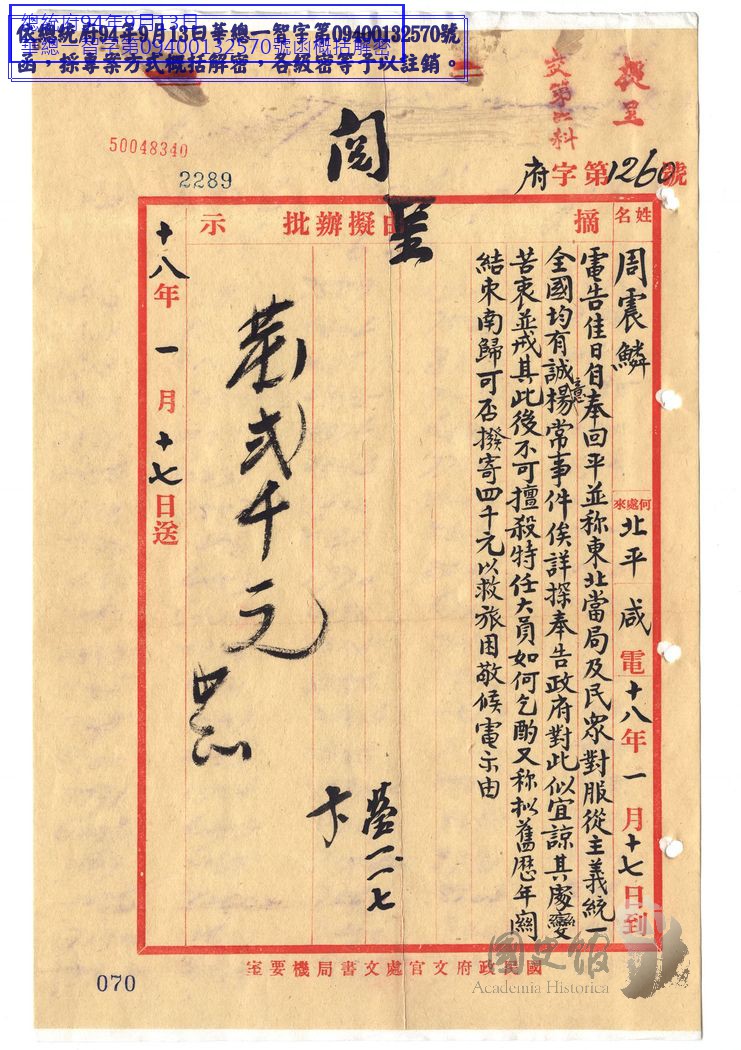 總統府94年9月13日
華總一智字第09400132570號函概括解密
依總統府94年9月13日華總一智字第09400132570號
函，採專案方式概括解密，各級密等予以註銷。
提呈
交第六科
50048340
2289
閱
呈
府字第1260號
姓名
周震鱗
何處來
北平咸電十八年一月十七日到
摘由
擬辦
批示
電告佳日自奉回平並称東北當局及民眾對服從主義統一
全國均有誠意揚常事件俟詳探奉告政府對此似宜諒其處變
苦衷並戒其此後不可擅殺特任大員如何乞酌又称拟舊歷年關
結束南歸可否撥寄四千元以救旅困敬候電示由
十八年一月十七日送
貳千元
一一七
國民政府文官處文書局機要室
070
國史館
Academia Historica